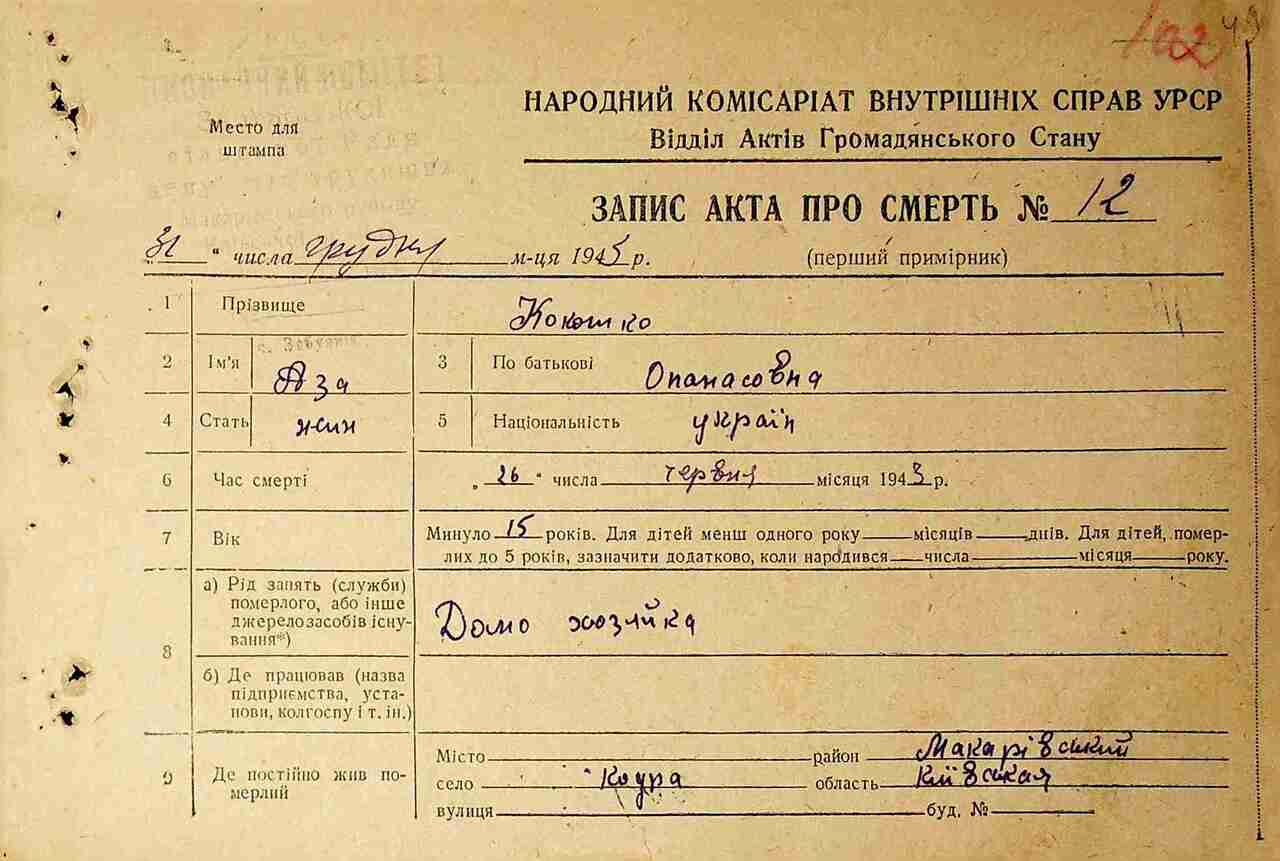 102 49
НАРОДНИЙ КОМІСАРІАТ ВНУТРІШНІХ СПРАВ УРСР
Відділ Актів Громадянського Стану
Место для
штампа
ЗАПИС АКТА ПРО СМЕРТЬ № 12
„31“ числа грудня м-ця 1945 р. (перший примірник)
1 Прізвище Кокошко
2 Ім'я Аза 3 По батькові Опанасовна
4 Стать жин 5 Національность україн
6 Час смерті „26“ числа червня місяця 1943 р.
7 Вік Минуло 15 років. Для дітей менш одного року місяців днів. Для дітей, помер-
лих до 5 років, зазначити додатково, коли народився числа місяця року.
8 а) Рід занять (служби)
померлого, або інше
джерело засобів існу-
вання*) Домо хозяйка
б) Де працював (назва
підприємства, уста-
нови, колгоспу і т. ін.)
9 Де постійно жив по-
мерлий
Місто район Макарівський
село область Київская
вулиця буд. №